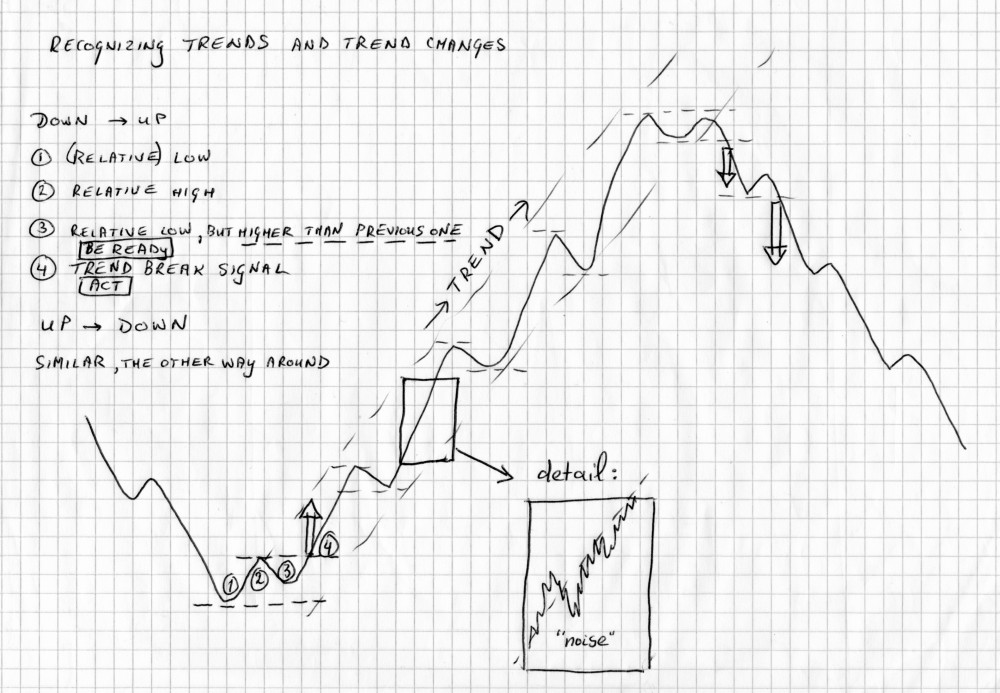 RECOGNIZING TRENDS AND TREND CHANGES
DOWN → UP
① (RELATIVE) LOW
② RELATIVE HIGH
③ RELATIVE LOW, BUT HIGHER THAN PREVIOUS ONE
BE READY
④ TREND BREAK SIGNAL
ACT
UP → DOWN
SIMILAR, THE OTHER WAY AROUND
→ TREND →
detail:
① ② ③ ④
"noise"